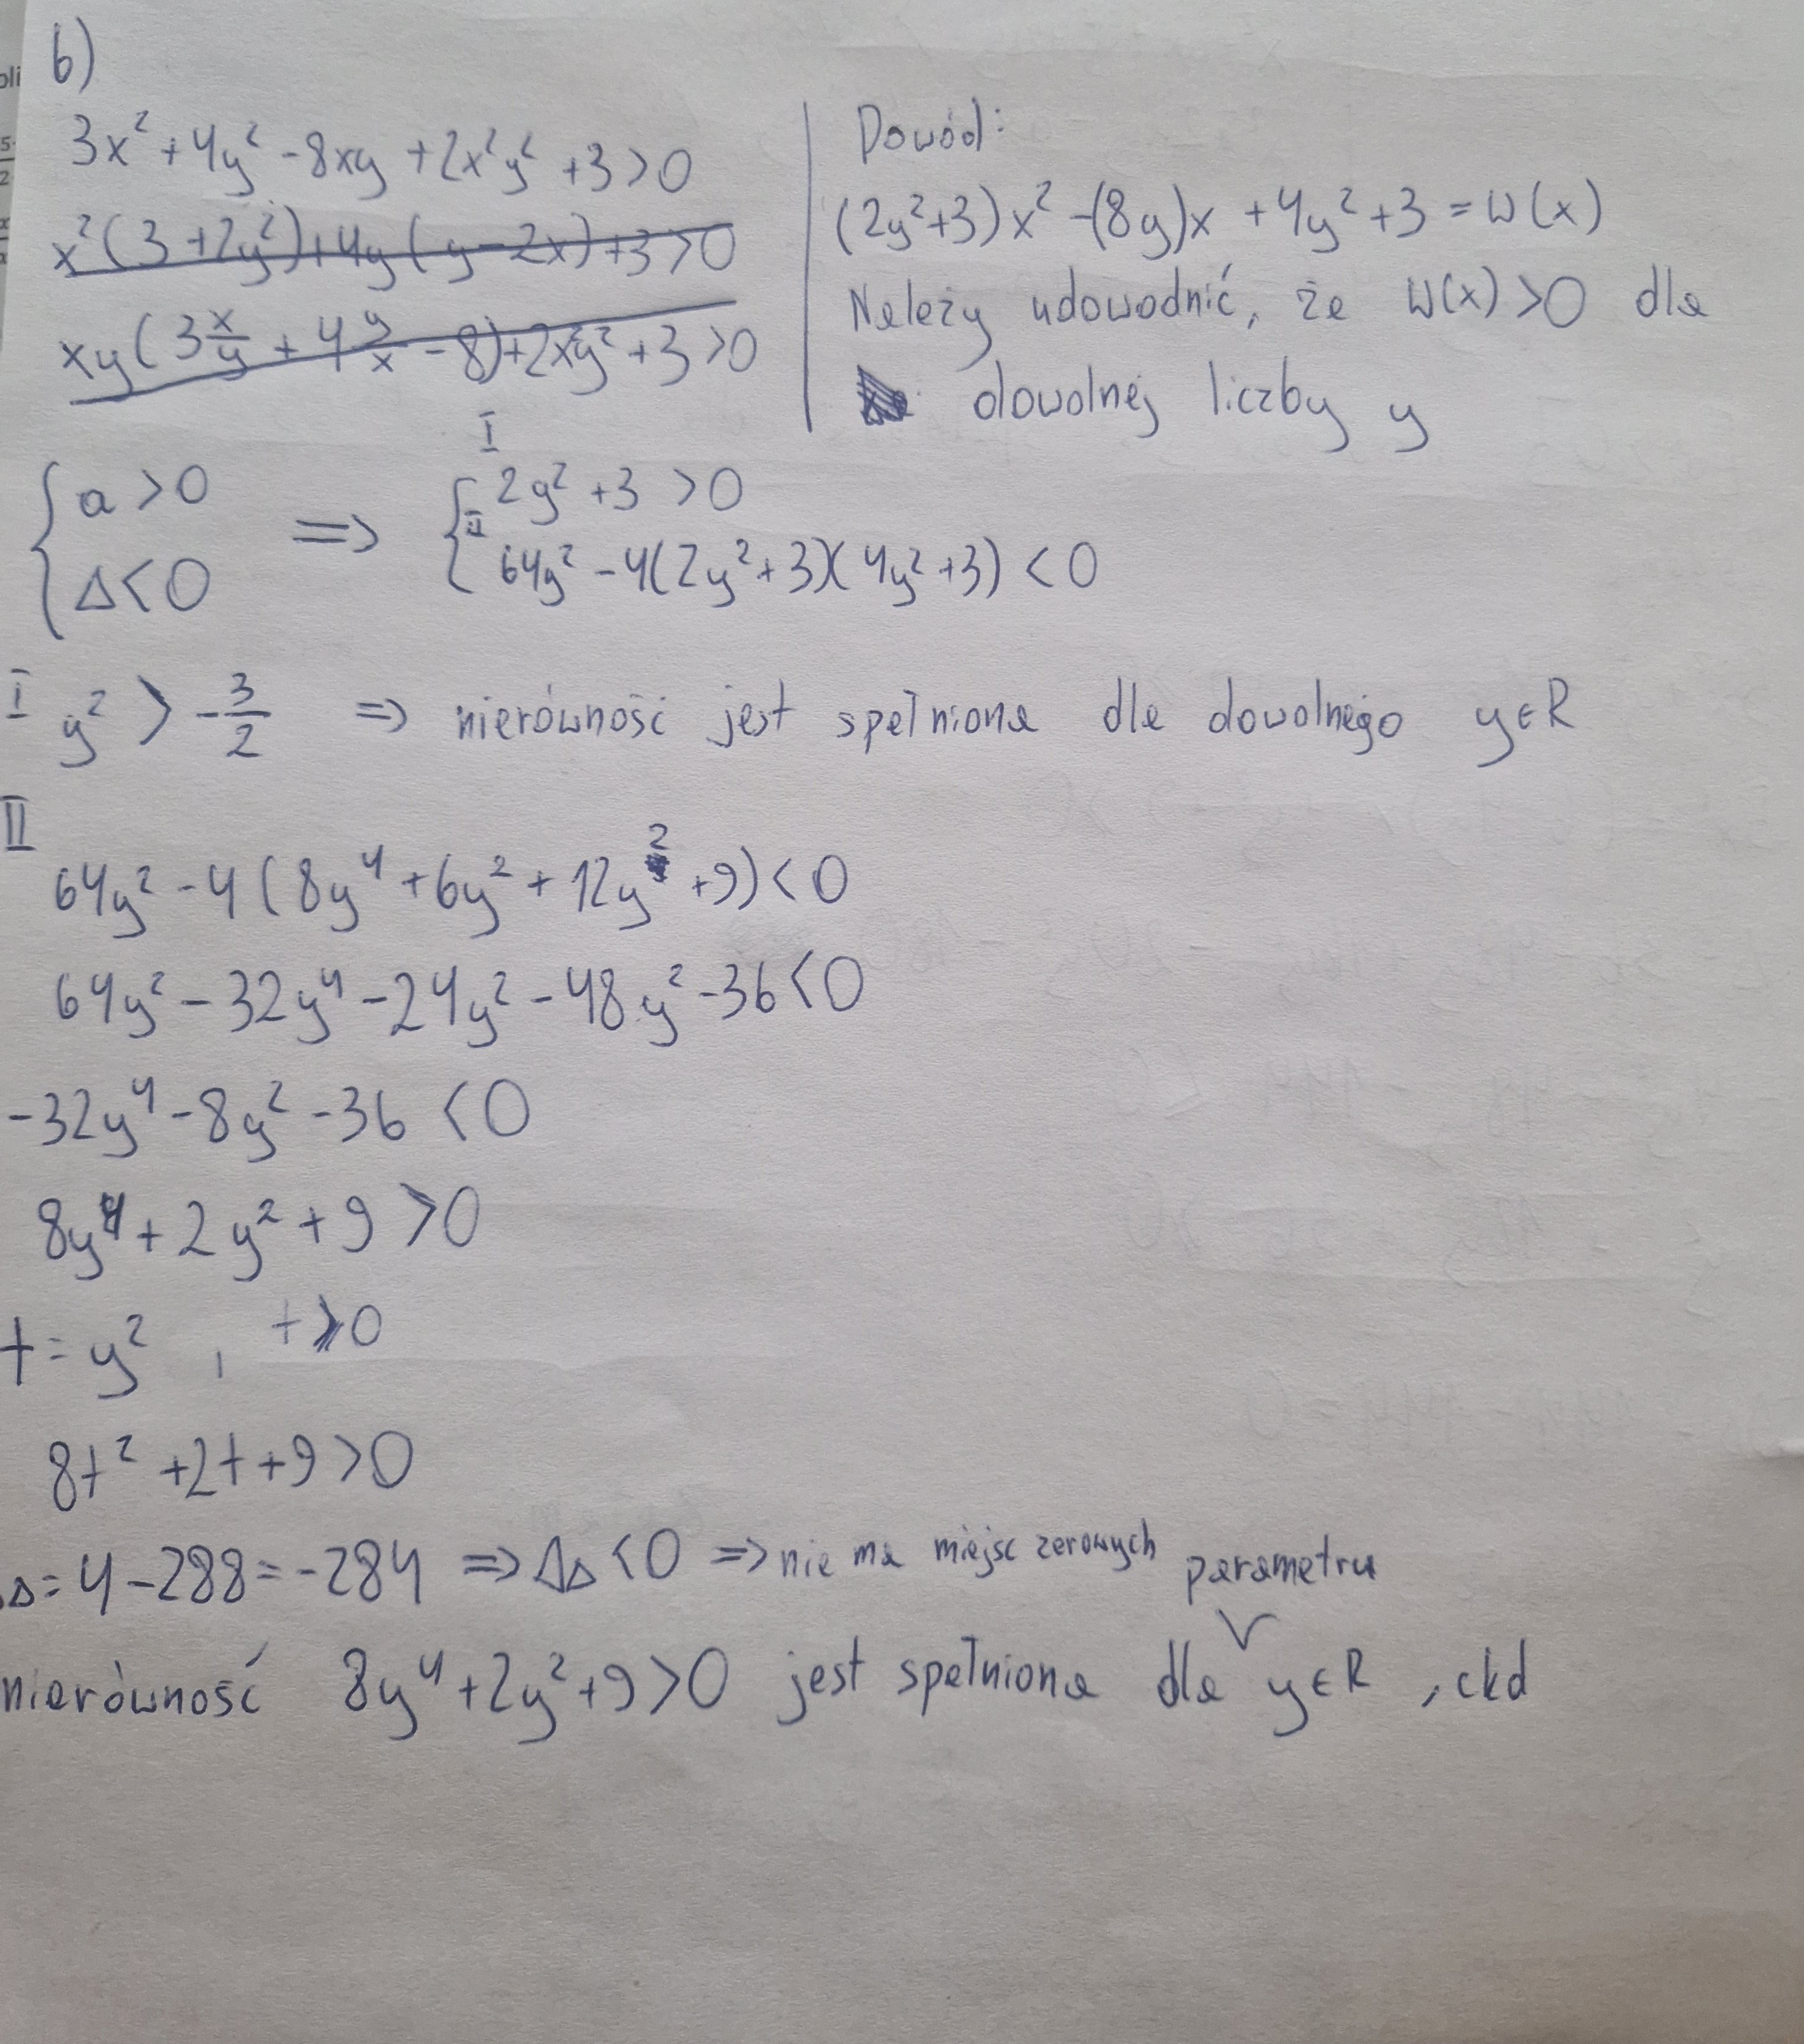 b)
3x² + 4y² - 8xy + 2x²y² + 3 > 0
x²(3 + 2y²) + 4y(y - 2x) + 3 > 0
xy(3x/y + 4y/x - 8) + 2x²y² + 3 > 0
Dowód:
(2y²+3)x² - (8y)x + 4y² + 3 = W(x)
Należy udowodnić, że W(x) > 0 dla
dowolnej liczby y
{ a > 0
Δ < 0
=>
I
{ 2y² + 3 > 0
II
64y² - 4(2y² + 3)(4y² + 3) < 0
I y² > -3/2 => nierówność jest spełniona dla dowolnego y∈R
II
64y² - 4(8y⁴ + 6y² + 12y² + 9) < 0
64y² - 32y⁴ - 24y² - 48y² - 36 < 0
-32y⁴ - 8y² - 36 < 0
8y⁴ + 2y² + 9 > 0
t = y² , t ≥ 0
8t² + 2t + 9 > 0
Δ = 4 - 288 = -284 => ΔΔ < 0 => nie ma miejsc zerowych
parametru
nierówność 8y⁴ + 2y² + 9 > 0 jest spełniona dla y∈R , ckd